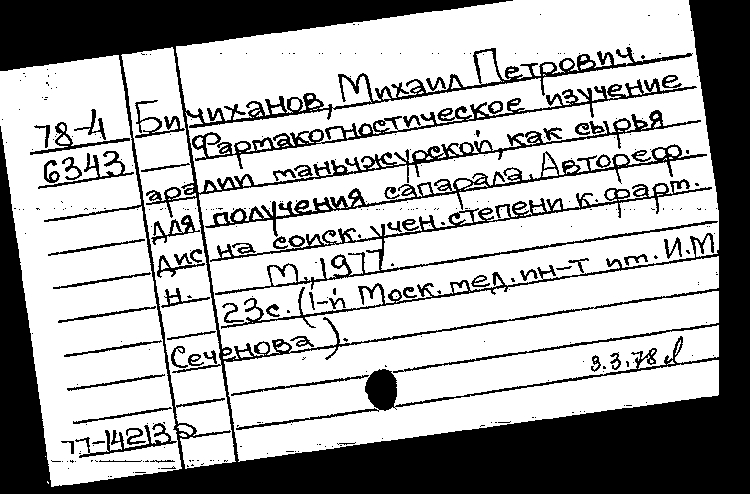 78-4
6343
Бичиханов, Михаил Петрович.
Фармакогностическое изучение
аралии маньчжурской, как сырья
для получения сапарала. Автореф.
дис на соиск. учен. степени к. фарм.
н. М., 1977.
23с. (I-й Моск. мед. ин-т им. И.М.
Сеченова).
3.3.78
77-14213